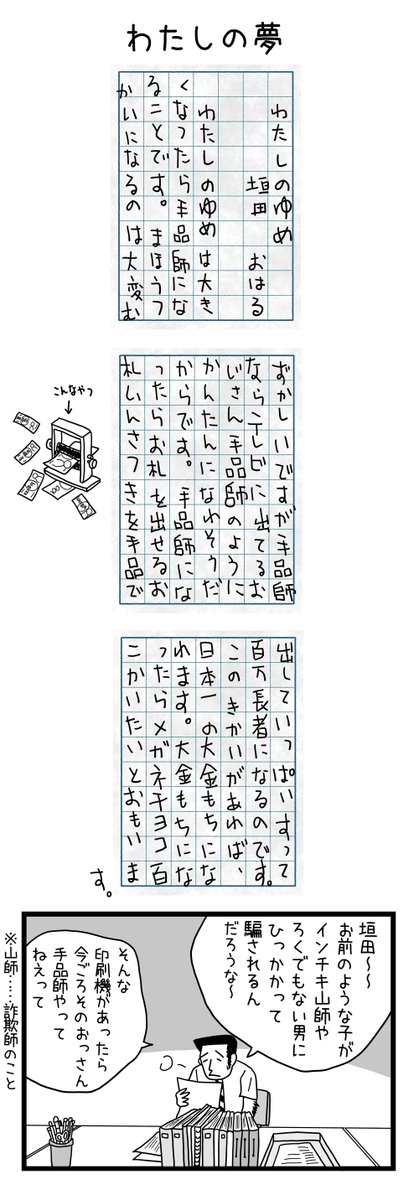 わたしの夢
わたしのゆめ
垣田　おはる
わたしのゆめは大き
くなったら手品師にな
ることです。まほうつ
かいになるのは大変む
こんなやつ
ずかしいですが手品師
ならテレビに出てるお
じさん手品師のように
かんたんになれそうだ
からです。手品師にな
ったらお札を出せるお
札いんさつきを手品で
出していっぱいすって
百万長者になるのです。
このきかいがあれば、
日本一の大金もちにな
れます。大金もちにな
ったらメガネチヨコ百
こかいたいとおもいま
す。
垣田〜〜
お前のような子が
インチキ山師や
ろくでもない男に
ひっかかって
騙されるん
だろうな〜
そんな
印刷機があったら
今ごろそのおっさん
手品師やって
ねえって
※山師……詐欺師のこと